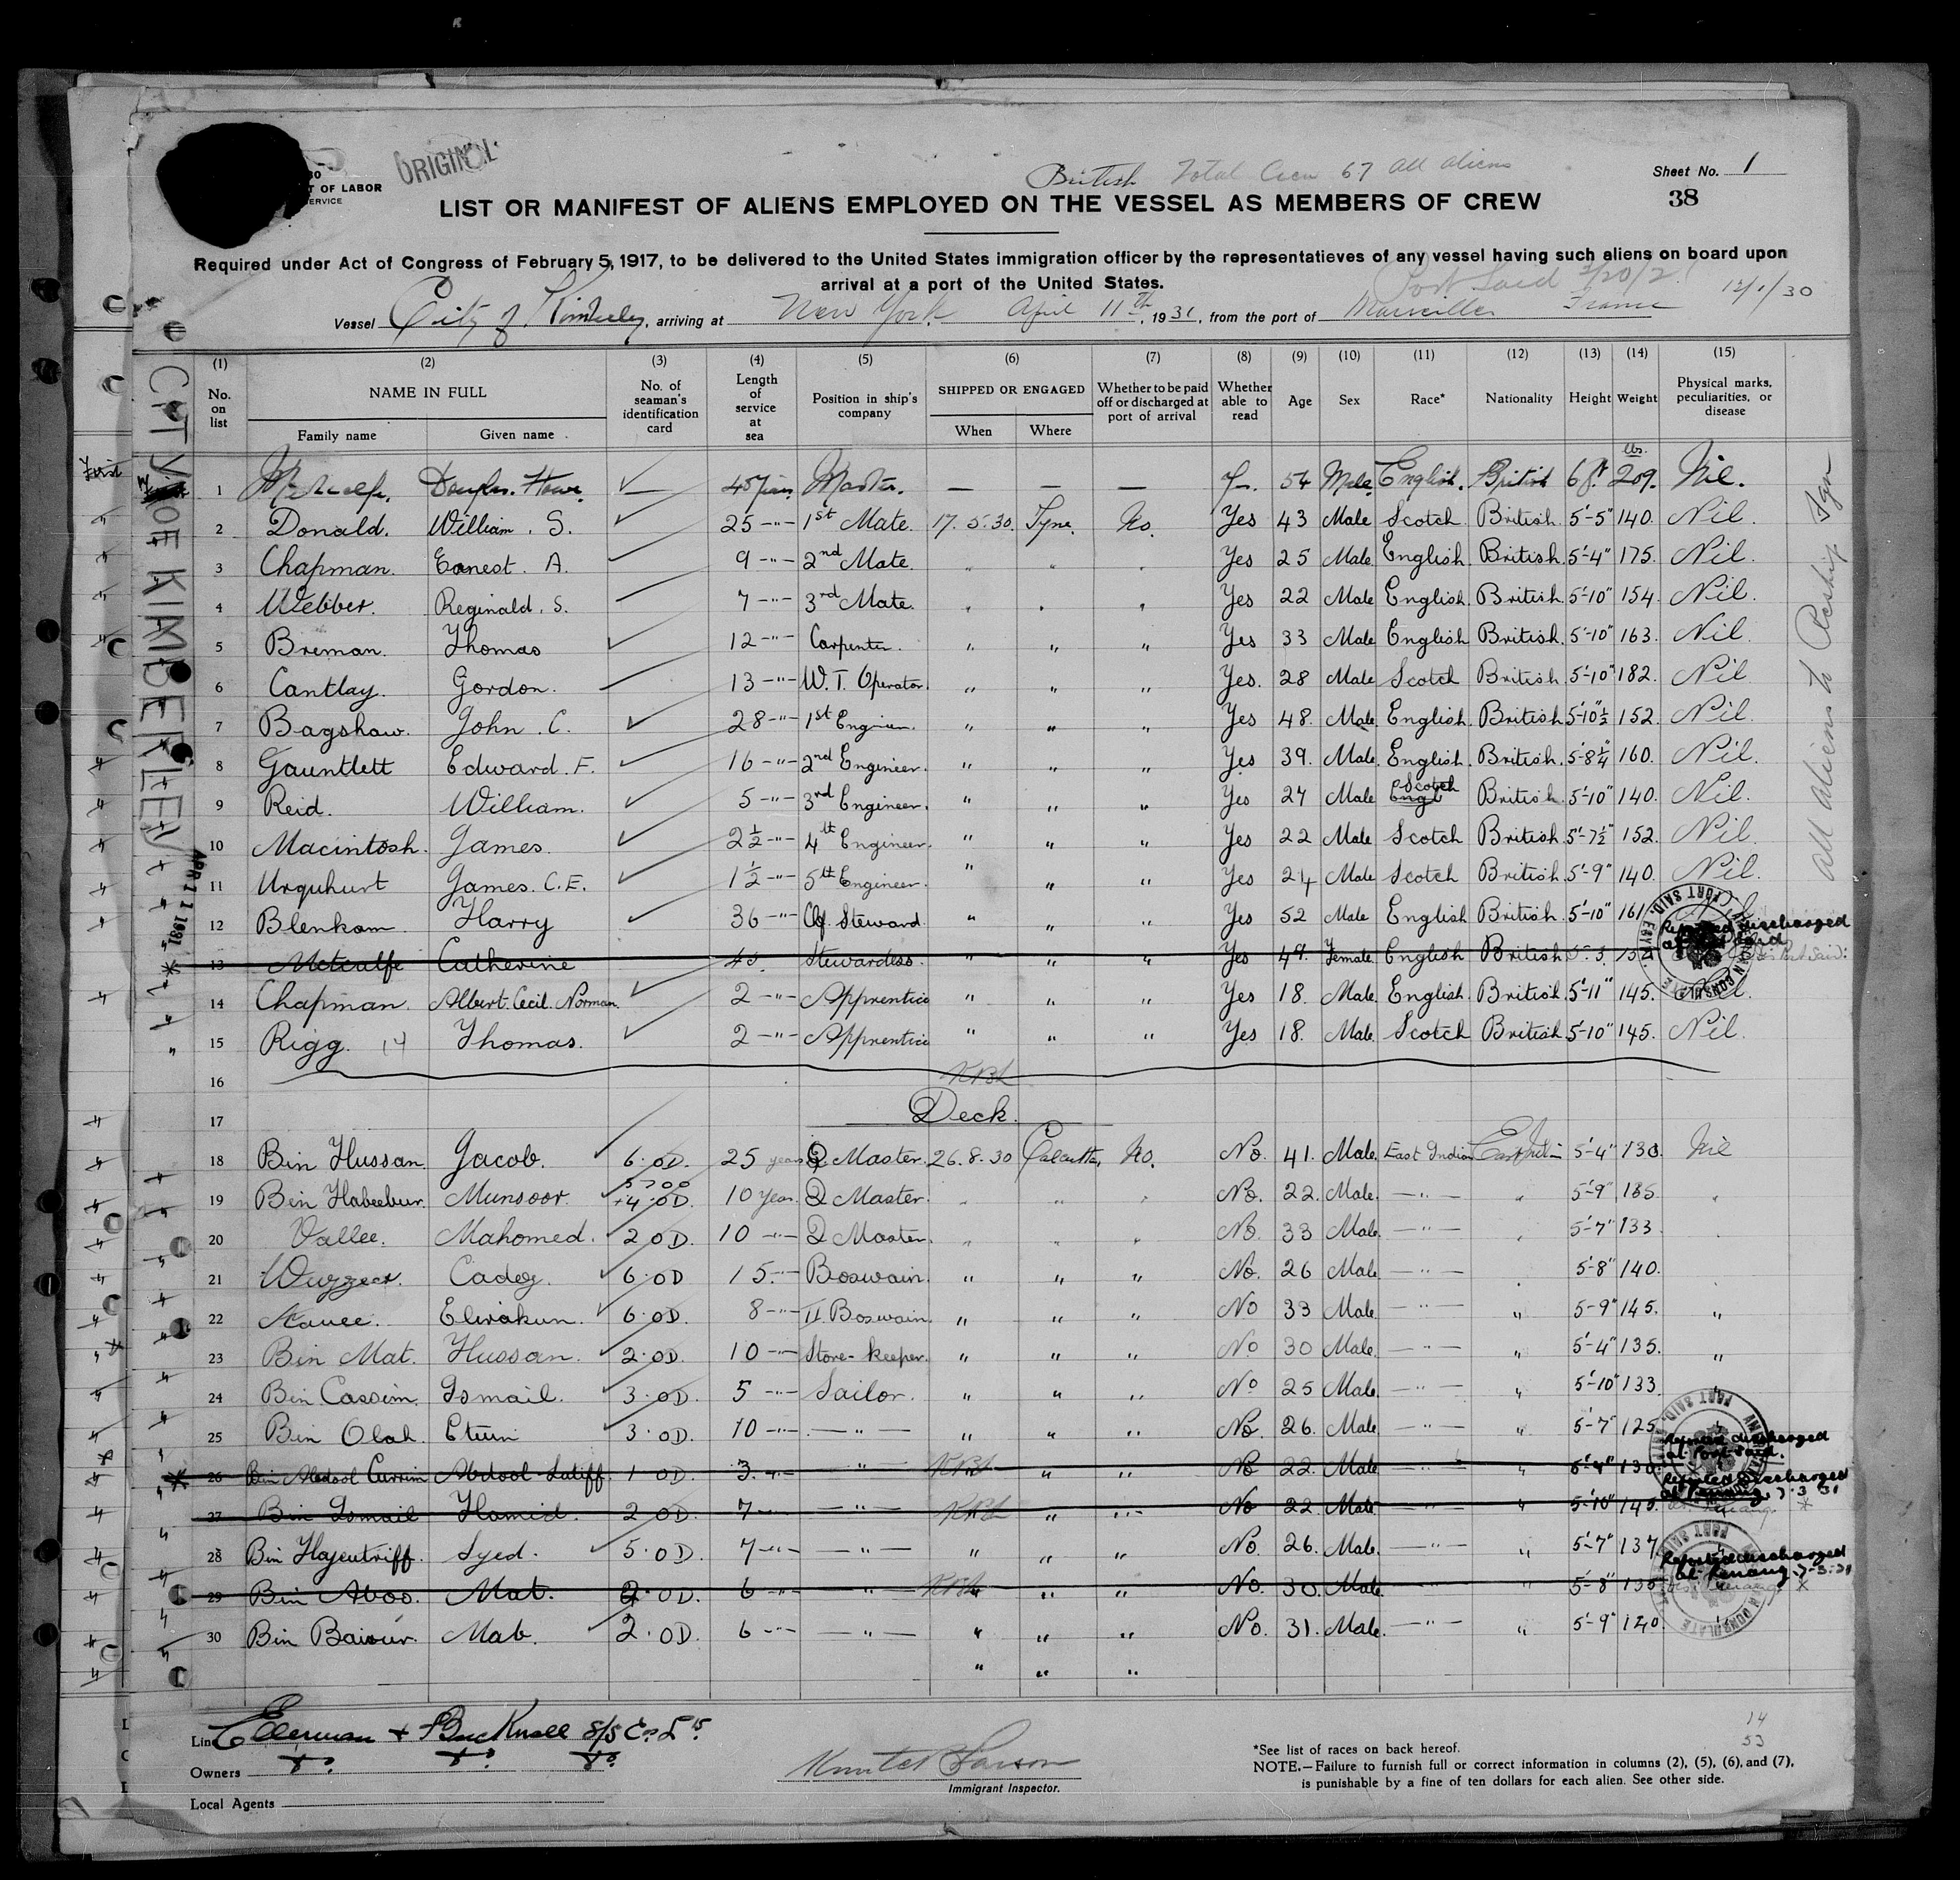 ORIGINAL
British Total Crew 67 all aliens
Sheet No. 1
T OF LABOR
SERVICE
38
LIST OR MANIFEST OF ALIENS EMPLOYED ON THE VESSEL AS MEMBERS OF CREW
Required under Act of Congress of February 5, 1917, to be delivered to the United States immigration officer by the representatieves of any vessel having such aliens on board upon
arrival at a port of the United States.
Port Said
Vessel City of Kimberley, arriving at New York April 11th, 1931, from the port of Marseilles France
CITY OF KIMBERLEY
APR 11 1931
(1) (2) (3) (4) (5) (6) (7) (8) (9) (10) (11) (12) (13) (14) (15)
No. on list NAME IN FULL No. of seaman's identification card Length of service at sea Position in ship's company SHIPPED OR ENGAGED Whether to be paid off or discharged at port of arrival Whether able to read Age Sex Race* Nationality Height Weight Physical marks, peculiarities, or disease
Family name Given name When Where
lbs.
1 Metcalfe. Douglas. Howe — 45 years Master. — — — 54 Male English. British 6 ft 209. Nil.
2 Donald. William. S. 25 -"- 1st Mate. 17.5.30. Tyne. No. Yes 43 Male Scotch British 5'-5" 140. Nil.
3 Chapman. Ernest. A. 9 -"- 2nd Mate. " " " Yes 25 Male English British 5'-4" 175. Nil.
4 Webber. Reginald. S. 7 -"- 3rd Mate. " " " Yes 22 Male English British 5'-10" 154. Nil.
5 Breman. Thomas 12 -"- Carpenter. " " " Yes 33 Male English British 5'-10" 163. Nil.
6 Cantlay. Gordon. 13 -"- W.T. Operator. " " " Yes. 28 Male Scotch British 5'-10" 182. Nil
7 Bagshaw. John. C. 28 -"- 1st Engineer. " " " Yes 48. Male English. British 5'-10½" 152. Nil.
8 Gauntlett Edward. F. 16 -"- 2nd Engineer. " " " Yes 39. Male. English. British. 5'-8¼" 160. Nil.
9 Reid. William. 5 -"- 3rd Engineer. " " " Yes 27 Male Scotch British. 5'-10" 140. Nil.
10 Macintosh. James. 2½ -"- 4th Engineer. " " " Yes 22 Male Scotch British 5'-7½" 152. Nil
11 Urquhurt James. C.E. 1½ -"- 5th Engineer. " " " Yes 24 Male Scotch British 5'-9" 140. Nil.
12 Blenkom Harry 36 -"- Cf. Steward " " " Yes 52 Male English British 5'-10" 161
13 Metcalfe Catherine Stewardess. " " " Yes 49. Female. English British Reported discharged at Port Said
14 Chapman. Albert. Cecil. Norman. 2 -"- Apprentice " " " Yes 18. Male. English. British 5'-11" 145. Nil
15 Rigg. 14 Thomas. 2 -"- Apprentice " " " Yes 18. Male. Scotch British 5'-10" 145. Nil.
16
17 Deck.
18 Bin Hussan. Jacob. 6.OD. 25 years Q Master. 26.8.30 Calcutta. No. No. 41. Male. East Indian East Indian 5'-4" 130. Nil
19 Bin Habeebur. Munsoor. 4.OD. 10 Years. Q Master " " " No. 22. Male. -"- " 5'-9" 135. "
20 Vallee. Mahomed. 2 OD. 10 -"- Q Master. " " " No. 33 Male. -"- " 5'-7" 133
21 Cadey. 6.OD 15 -"- Boswain. " " " No. 26 Male. -"- 5'-8" 140.
22 6.OD. 8 -"- II Boswain. " " " No 33 Male. -"- " 5-9" 145. "
23 Bin Mat. Hussan. 2.OD. 10 -"- Store-keeper. " " " No 30 Male. -"- " 5'-4" 135. "
24 Bin Cassim. Ismail. 3.OD. 5 -"- Sailor. " " " No 25 Male. -"- " 5'-10" 133. "
25 Bin Olah. Etuin 3.OD. 10 -"- -"- " " " No. 26. Male. -"- " 5'-7" 125.
26 Bin Abdool Currim Abdool Latiff. 1 OD. 3. -"- -"- " " No 22. Male -"- " 130 Reported discharged at Port Said.
27 Bin Ismail Hamid. 2 OD. 7 -"- -"- " " No 22. Male. -"- " 5'-10" 140. Reported Discharged at Penang. 7.3.31
28 Bin Hajeutriff. Syed. 5.OD. 7 -"- -"- " " " No. 26. Male. -"- " 5'-7" 137
29 Bin Aboo. Mat. 2.OD. 6 -"- -"- " " " No. 30. Male -"- " 5'-8" 135 Reported discharged at Penang. 7-3-31
30 Bin Mat. 2.OD. 6 -"- -"- " " " No. 31. Male. -"- " 5'-9" 140.
" " "
All aliens to Reship Fgn
Line Ellerman & Bucknall S/S Co. Ltd.
Owners
Local Agents
Immigrant Inspector.
14
53
*See list of races on back hereof.
NOTE.—Failure to furnish full or correct information in columns (2), (5), (6), and (7),
is punishable by a fine of ten dollars for each alien. See other side.